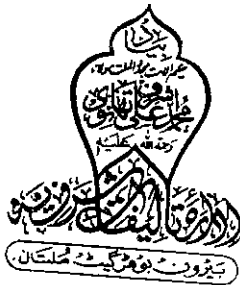 بیاد
حکیم الامت مجدد الملت حضرت مولانا
محمد اشرف علی تھانوی
رحمة الله علیہ
ادارہ تالیفات اشرفیہ
بیرون بوہڑ گیٹ ملتان